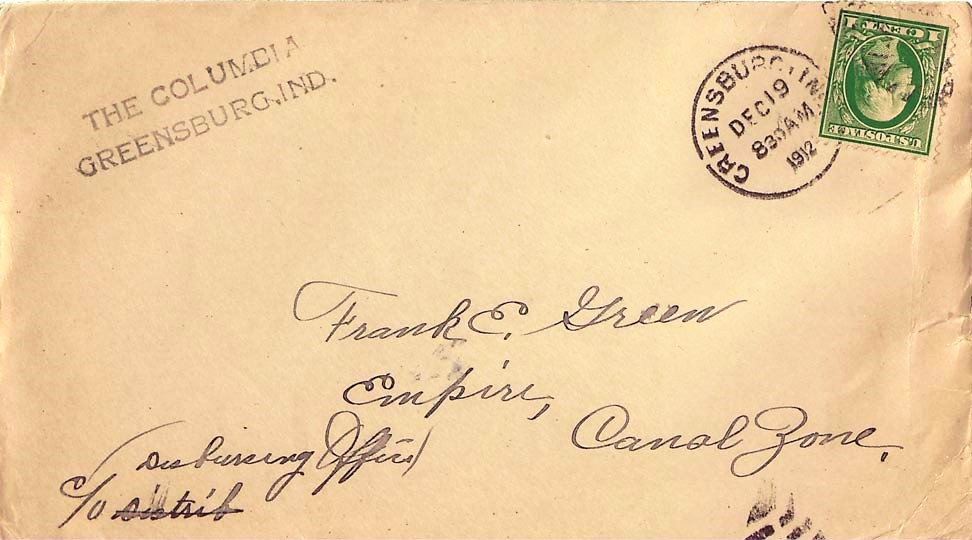 THE COLUMBIA
GREENSBURG, IND.
GREENSBURG, IND
DEC 19
830 AM
1912
1 CENT 1
U.S. POSTAGE
Frank E. Green
Empire,
Canal Zone.
(Disbursing Office)
c/o distrib